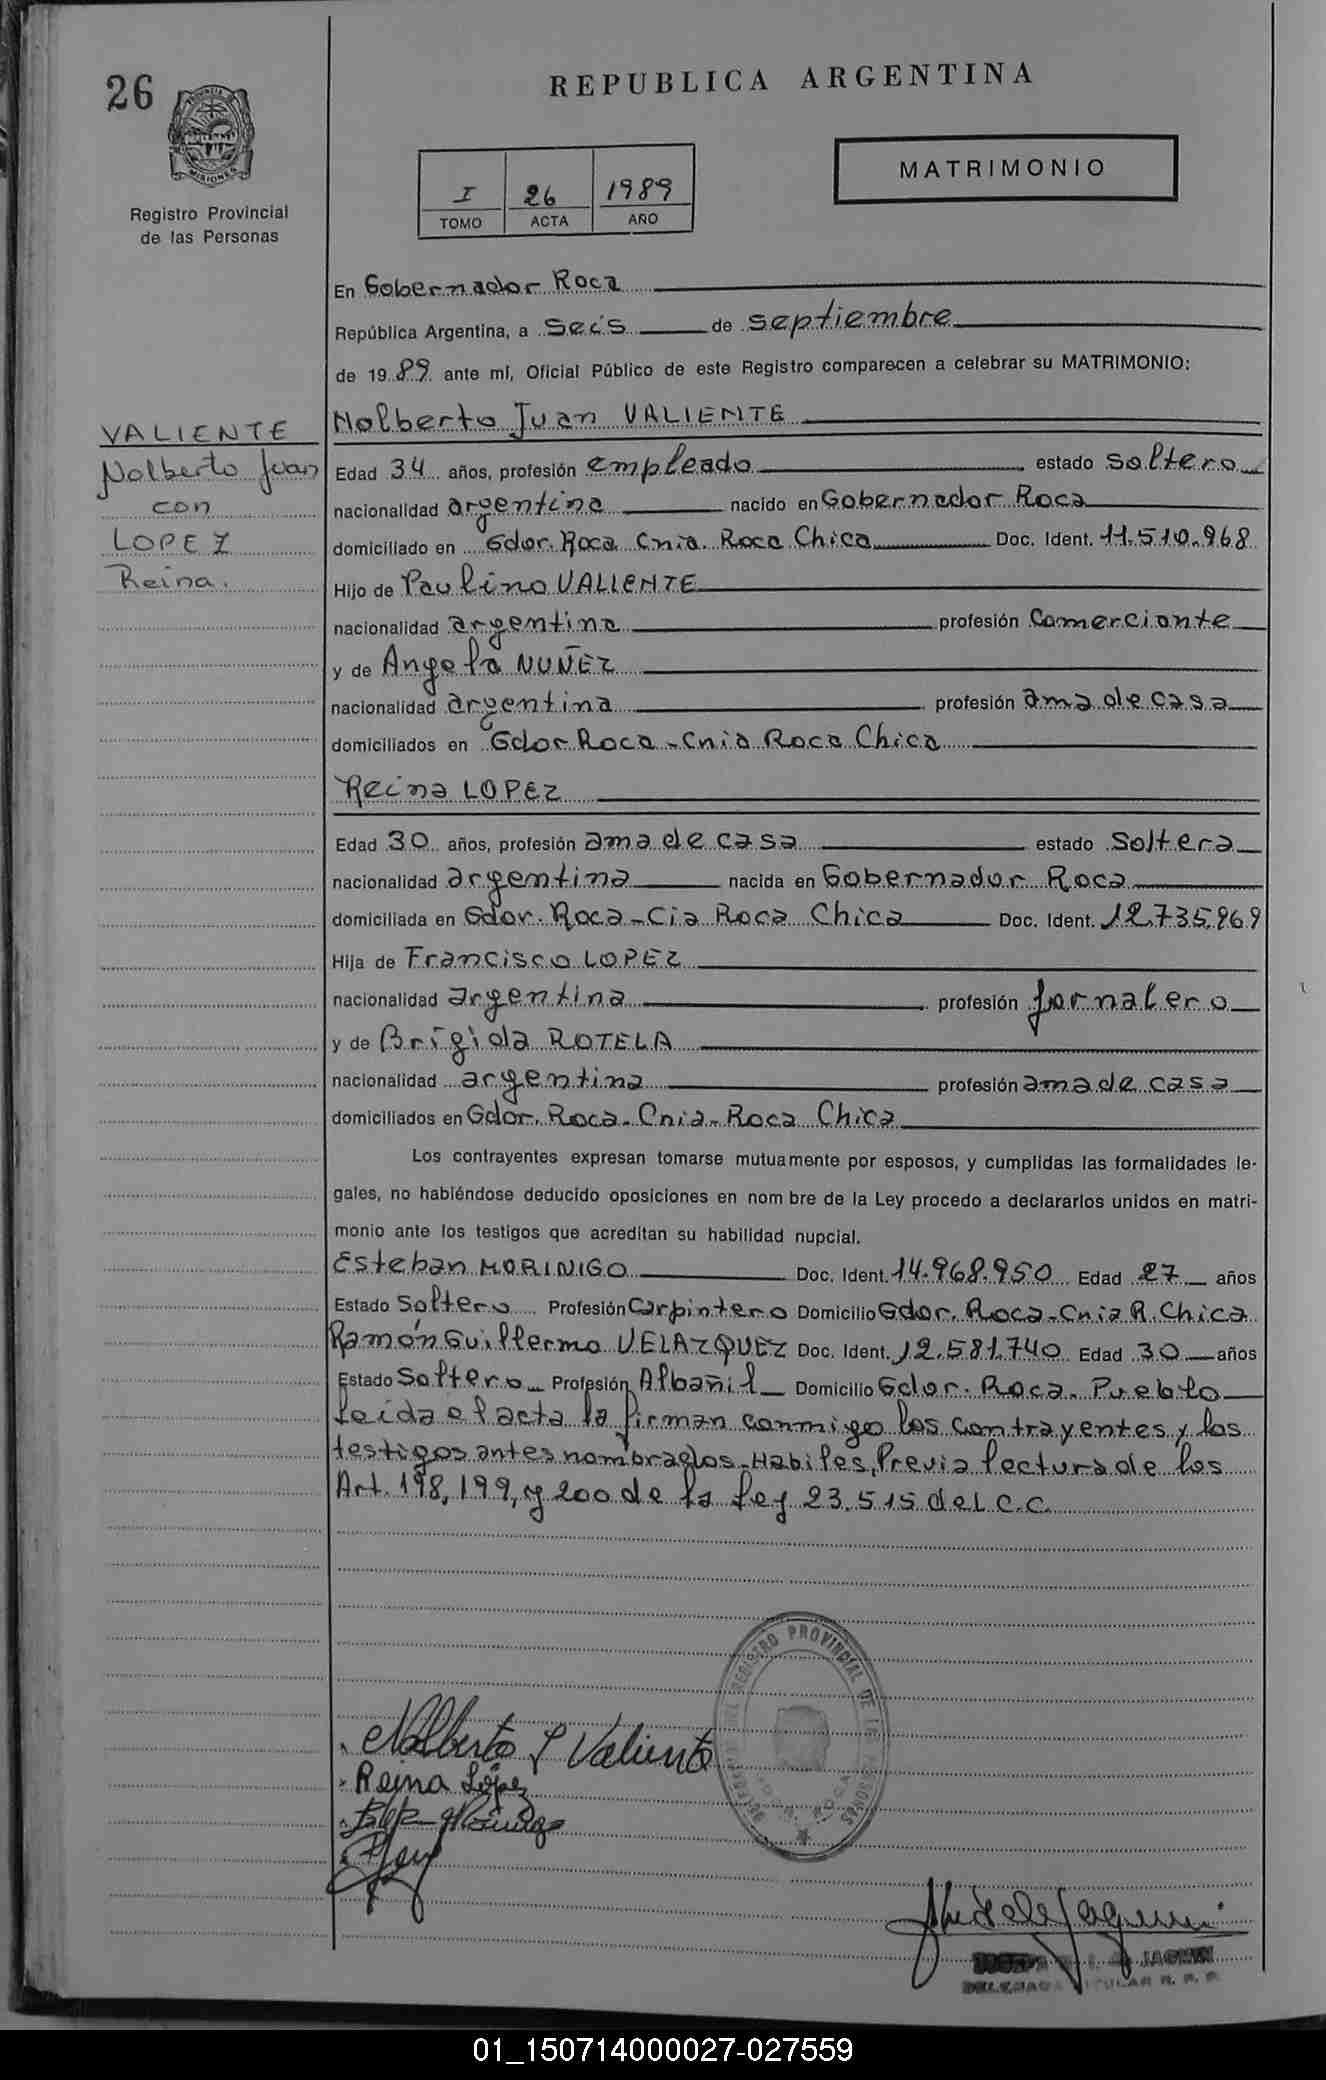 26
REPUBLICA ARGENTINA
PROVINCIA DE
MISIONES
Registro Provincial
de las Personas
I 26 1989
TOMO ACTA AÑO
MATRIMONIO
En Gobernador Roca
República Argentina, a seis de septiembre
de 1989 ante mí, Oficial Público de este Registro comparecen a celebrar su MATRIMONIO:
VALIENTE
Nolberto Juan
con
LOPEZ
Reina.
Nolberto Juan VALIENTE
Edad 34 años, profesión empleado estado soltero
nacionalidad argentina nacido en Gobernador Roca
domiciliado en Gdor. Roca Cnia. Roca Chica Doc. Ident. 11.510.968
Hijo de Paulino VALIENTE
nacionalidad argentina profesión Comerciante
y de Angela NUÑEZ
nacionalidad argentina profesión ama de casa
domiciliados en Gdor Roca - Cnia Roca Chica
Reina LOPEZ
Edad 30 años, profesión ama de casa estado Soltera
nacionalidad argentina nacida en Gobernador Roca
domiciliada en Gdor. Roca - Cia Roca Chica Doc. Ident. 12.735.969
Hija de Francisco LOPEZ
nacionalidad argentina profesión jornalero
y de Brígida ROTELA
nacionalidad argentina profesión ama de casa
domiciliados en Gdor. Roca - Cnia - Roca Chica
Los contrayentes expresan tomarse mutuamente por esposos, y cumplidas las formalidades le-
gales, no habiéndose deducido oposiciones en nom bre de la Ley procedo a declararlos unidos en matri-
monio ante los testigos que acreditan su habilidad nupcial.
Esteban MORINIGO Doc. Ident. 14.968.950 Edad 27 años
Estado Soltero Profesión Carpintero Domicilio Gdor. Roca - Cnia R. Chica
Ramón Guillermo VELAZQUEZ Doc. Ident. 12.581.740 Edad 30 años
Estado Soltero Profesión Albañil Domicilio Gdor. Roca. Pueblo
Leída el acta la firman conmigo los contrayentes y los
testigos antes nombrados - Habiles, Previa lectura de los
Art. 198, 199, y 200 de la ley 23.515 del C.C.
REGISTRO PROVINCIAL DE LAS PERSONAS
GDOR. ROCA
Nolberto J Valiente
Reina López
JAGMIN
DELEGADA TITULAR R. P. P.
01_150714000027-027559